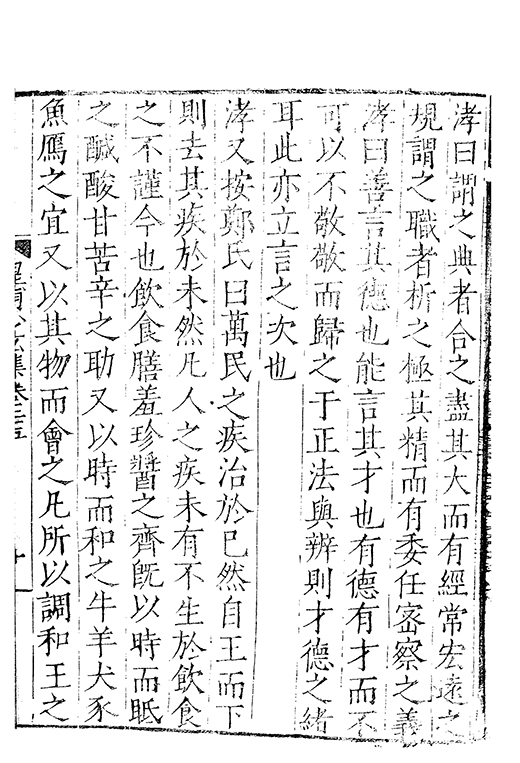 涍曰謂之典者合之盡其大而有經常宏遠之
規謂之職者析之極其精而有委任宻察之義
涍曰善言其德也能言其才也有德有才而不
可以不敬敬而歸之于正法與辨則才德之緒
耳此亦立言之次也
涍又按鄭氏曰萬民之疾治於已然自王而下
則去其疾於未然凡人之疾未有不生於飲食
之不謹今也飲食膳羞珍醬之齊旣以時而眡
之鹹酸甘苦辛之助又以時而和之牛羊犬豕
魚鴈之宜又以其物而會之凡所以調和王之
集卷三五
十